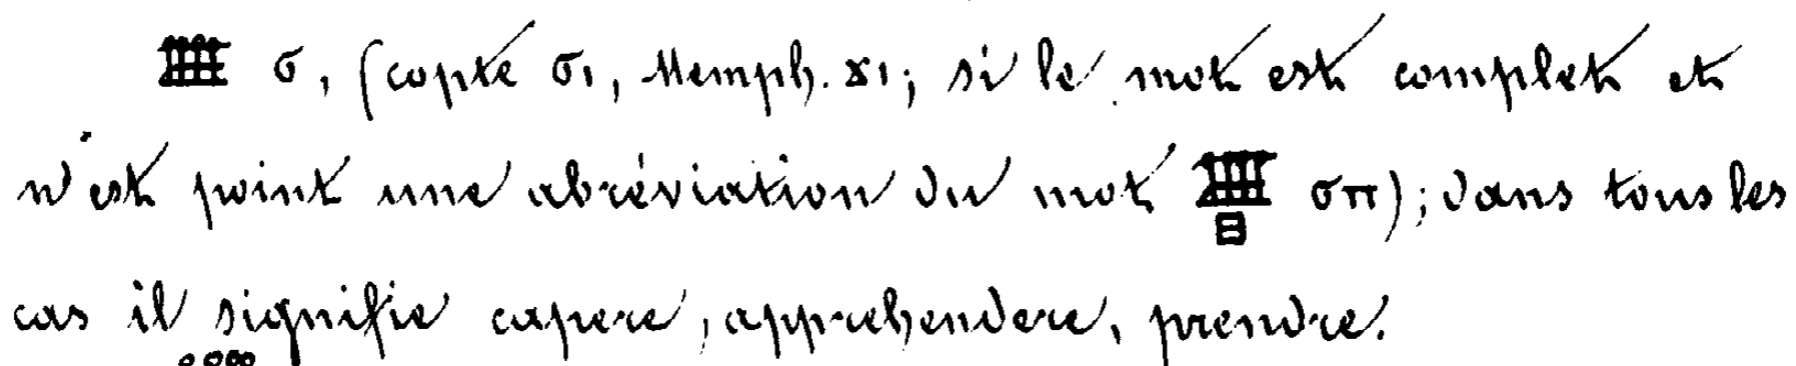 𓈈 ϭ, (copte ϭι, Memph. ϫι; si le mot est complet et
n'est point une abréviation du mot 𓈈𓊪 ϭπ); dans tous les
cas il signifie capere, apprehendere, prendre.